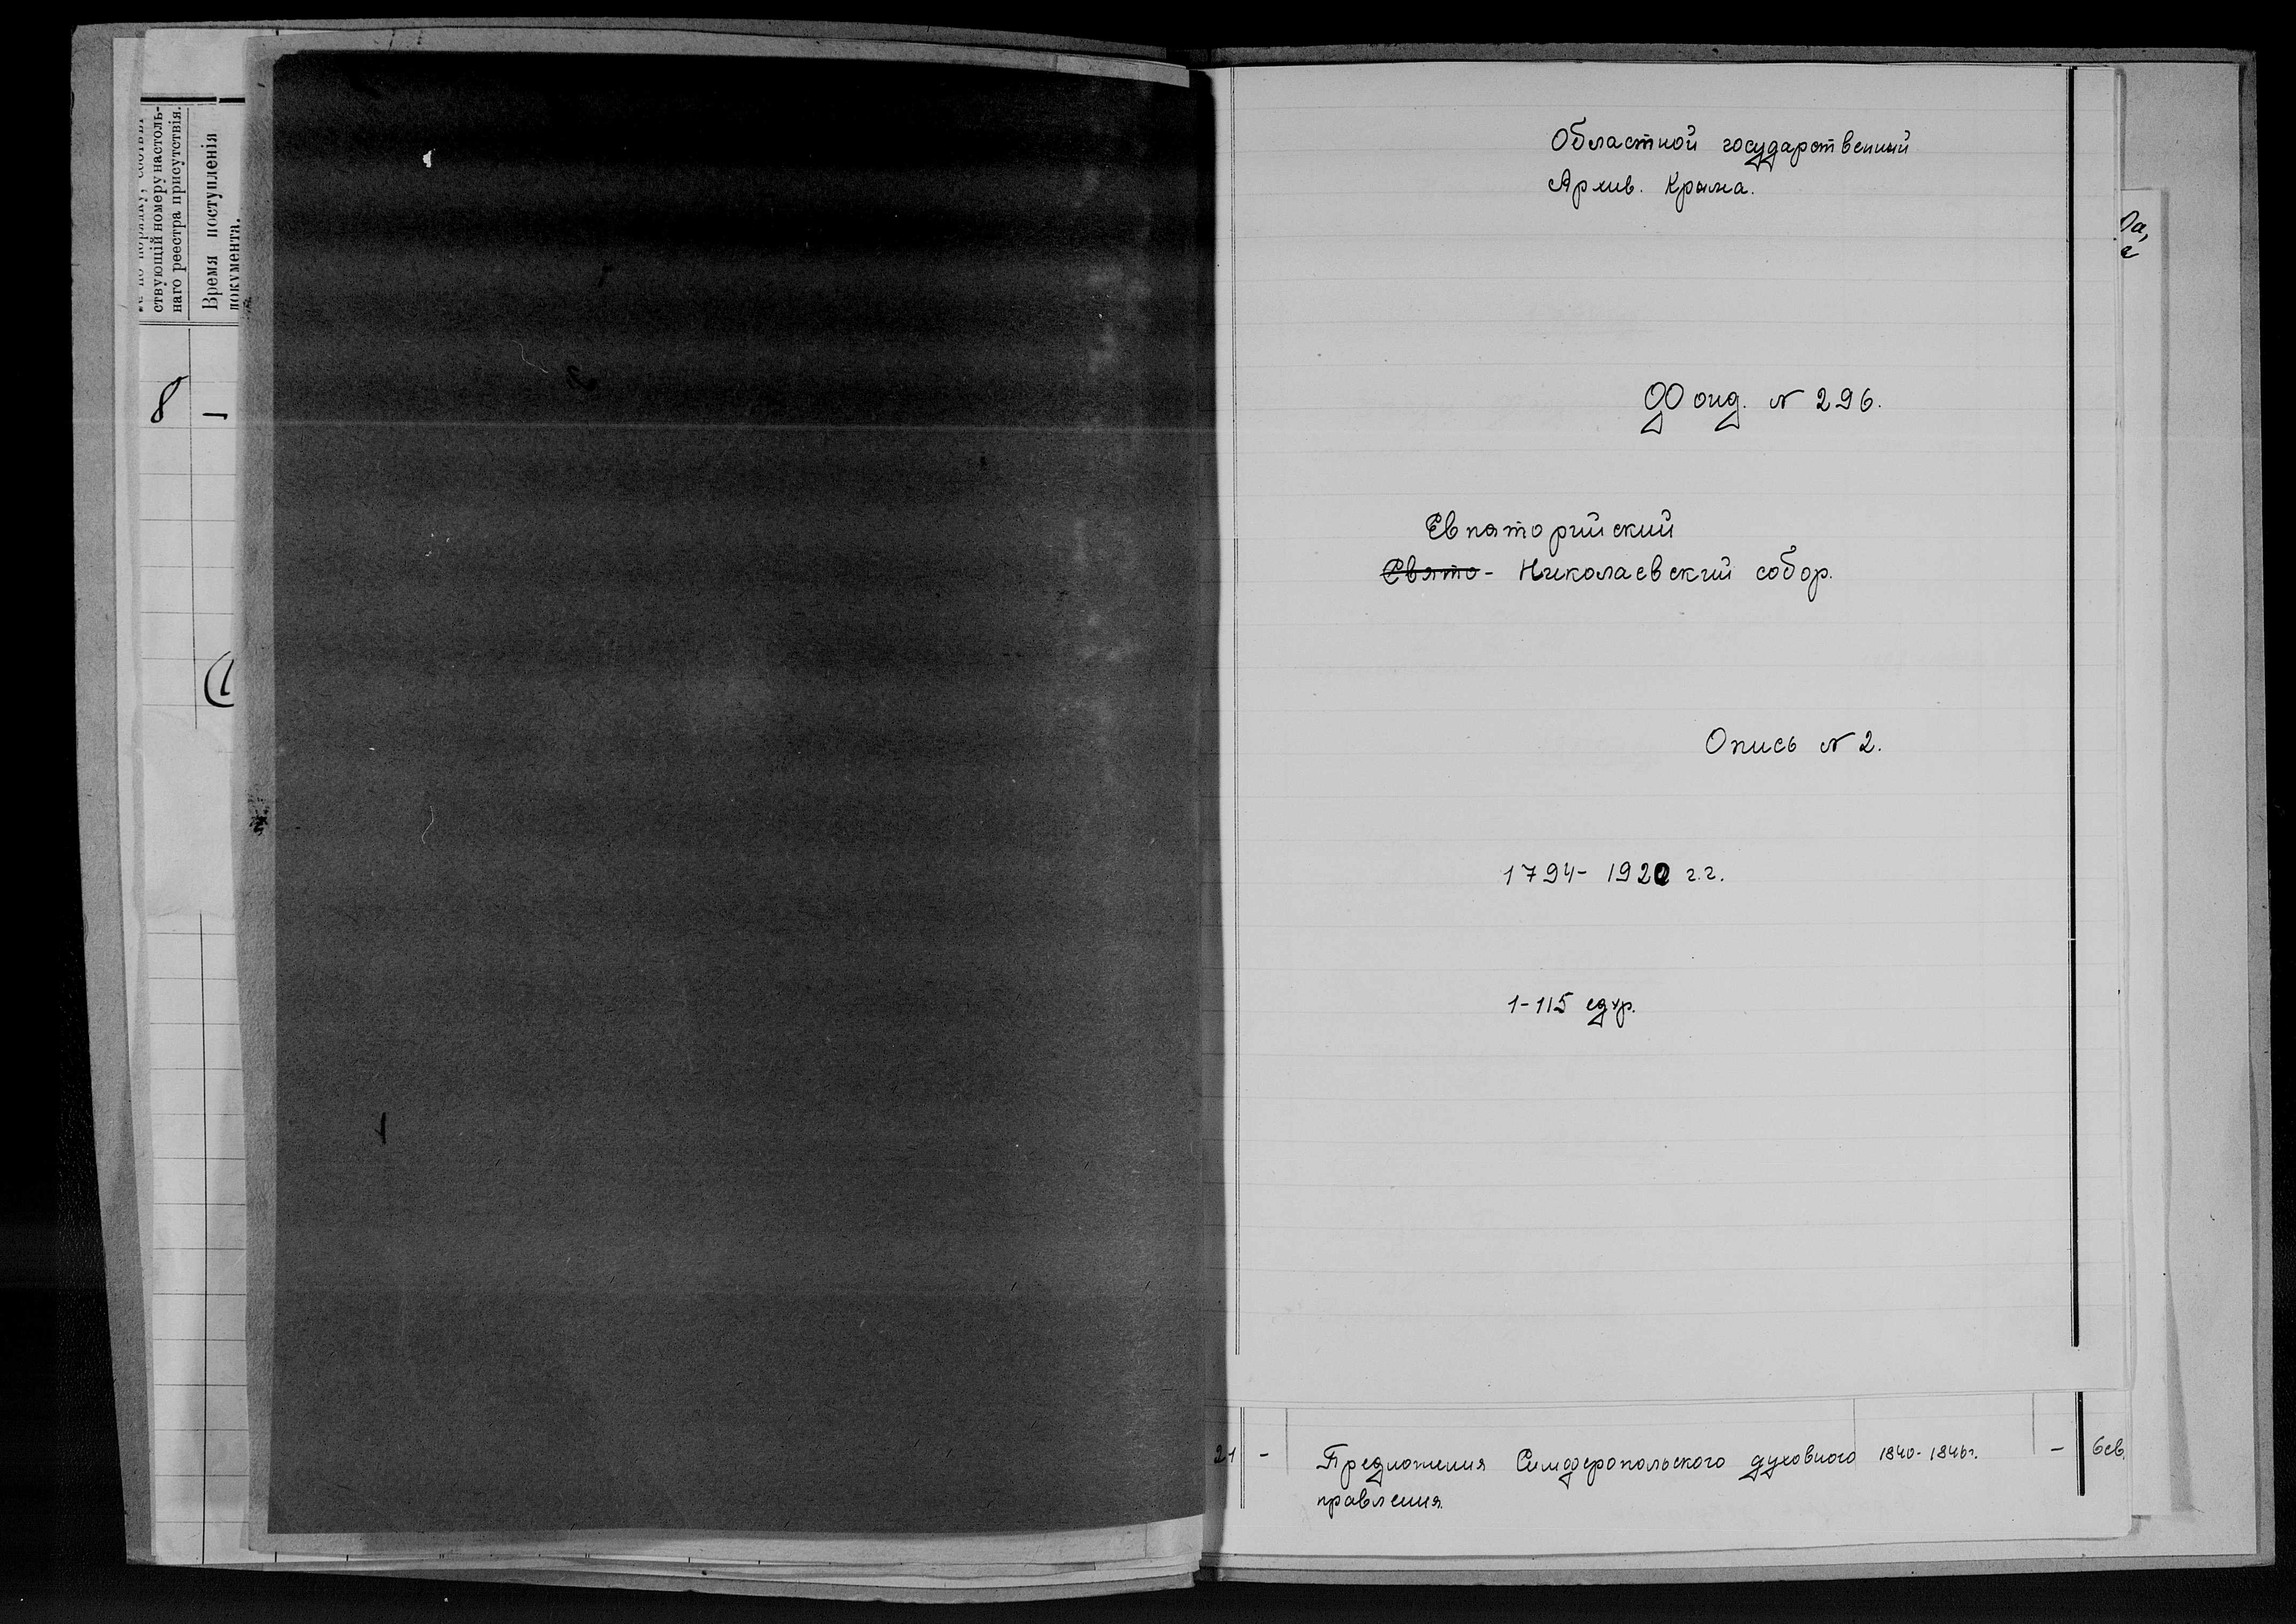 ствующій номеру настоль-
наго реестра присутствія.
Время поступленія
документа.
8 –
(1
Областной государственный
Архив. Крыма.
Фонд. N 296.
Евпаторийский
Свято- Николаевский собор.
Опись N 2.
1794- 1920 г.г.
1-115 едхр.
21 - Предложения Симферопольского духовного 1840-1846г. -
правления